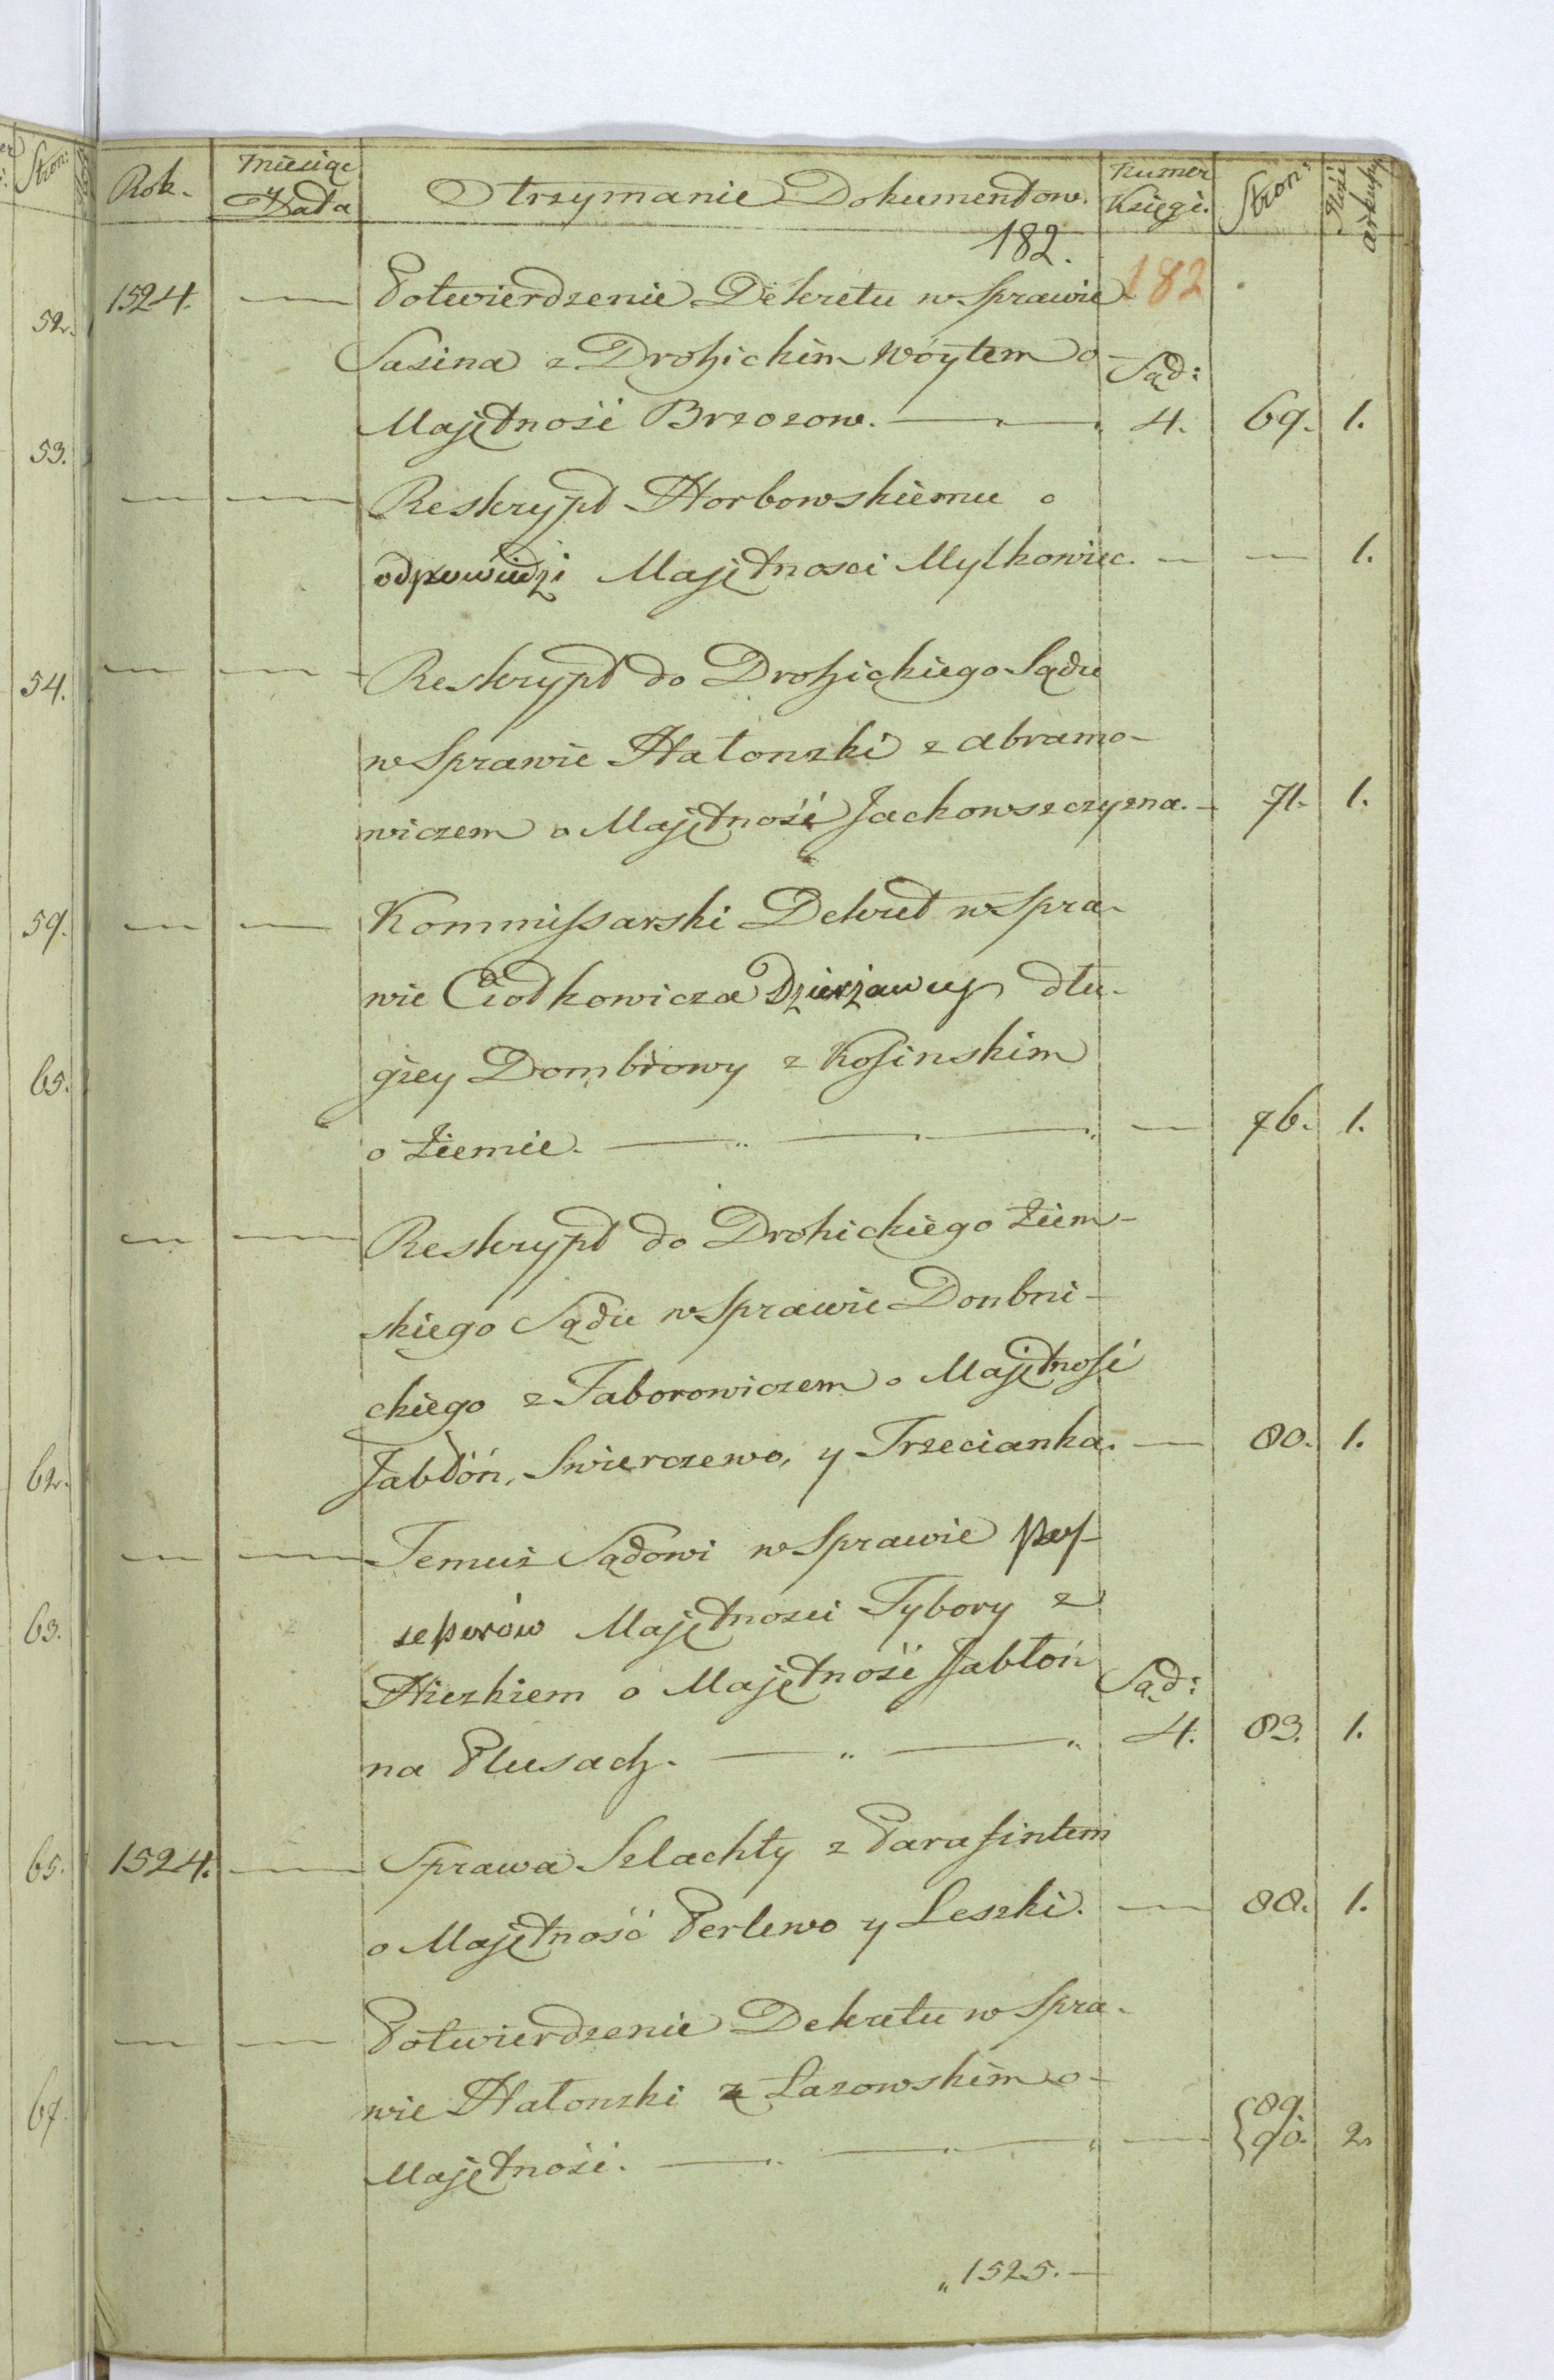 Rok. Miesiąc y Data Otrzymanie Dokumentow. Numer Księgi. Stron: Ilość arkuszy
182.
1524. — Potwierdzenie Dekretu w Sprawie 182
Sasina z Drohickim Wóytem o
Sąd:
Majętność Brzozow. — 4. 69. 1.
— — Reskrypt Horbowskiemu o
odpowiedzi Majętnosci Mylkowiec. — — 1.
— — Reskrypt do Drohickiego Sądu
w Sprawie Hatonzki z Abramo-
wiczem o Majętność Jackowszczyzna. — 71. 1.
— — Kommissarski Dekret w Spra-
wie Ciołkowicza Dzierżawcy dłu-
giey Dombrowy z Kosinskim
o Ziemie. — — 76. 1.
— — Reskrypt do Drohickiego Ziem-
skiego Sądu w Sprawie Donbni-
ckiego z Taborowiczem o Majętność
Jabłóń, Swierczewo, y Trzecianka. — 80. 1.
— — Temuż Sądowi w Sprawie
Majętnosci Tybory z
Hiczkiem o Majętność Jabłoń Sąd:
na Plusach. — 4. 83. 1.
1524. — Sprawa Szlachty z Parafintem
o Majętność Perlewo y Leszki. — 88. 1.
— — Potwierdzenie Dekretu w Spra-
wie Hatonzki z Lazowskim o
Majętność. — — {89. 90. 2.
„1525. —
Stron:
52.
53.
54.
59.
65.
62.
63.
65.
67.